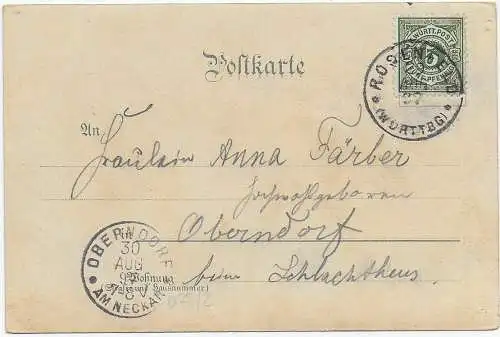 Postkarte
K. WÜRTT. POST
5
PFENNIG
ROSENFELD
(WÜRTTBG)
An
Fräulein Anna Färber
Hochwohlgeboren
in
Oberndorf
beim Schlachthaus.
OBERNDORF
30
AUG
97
7-8 V
AM NECKAR
Wohnung
(Straße und Hausnummer)